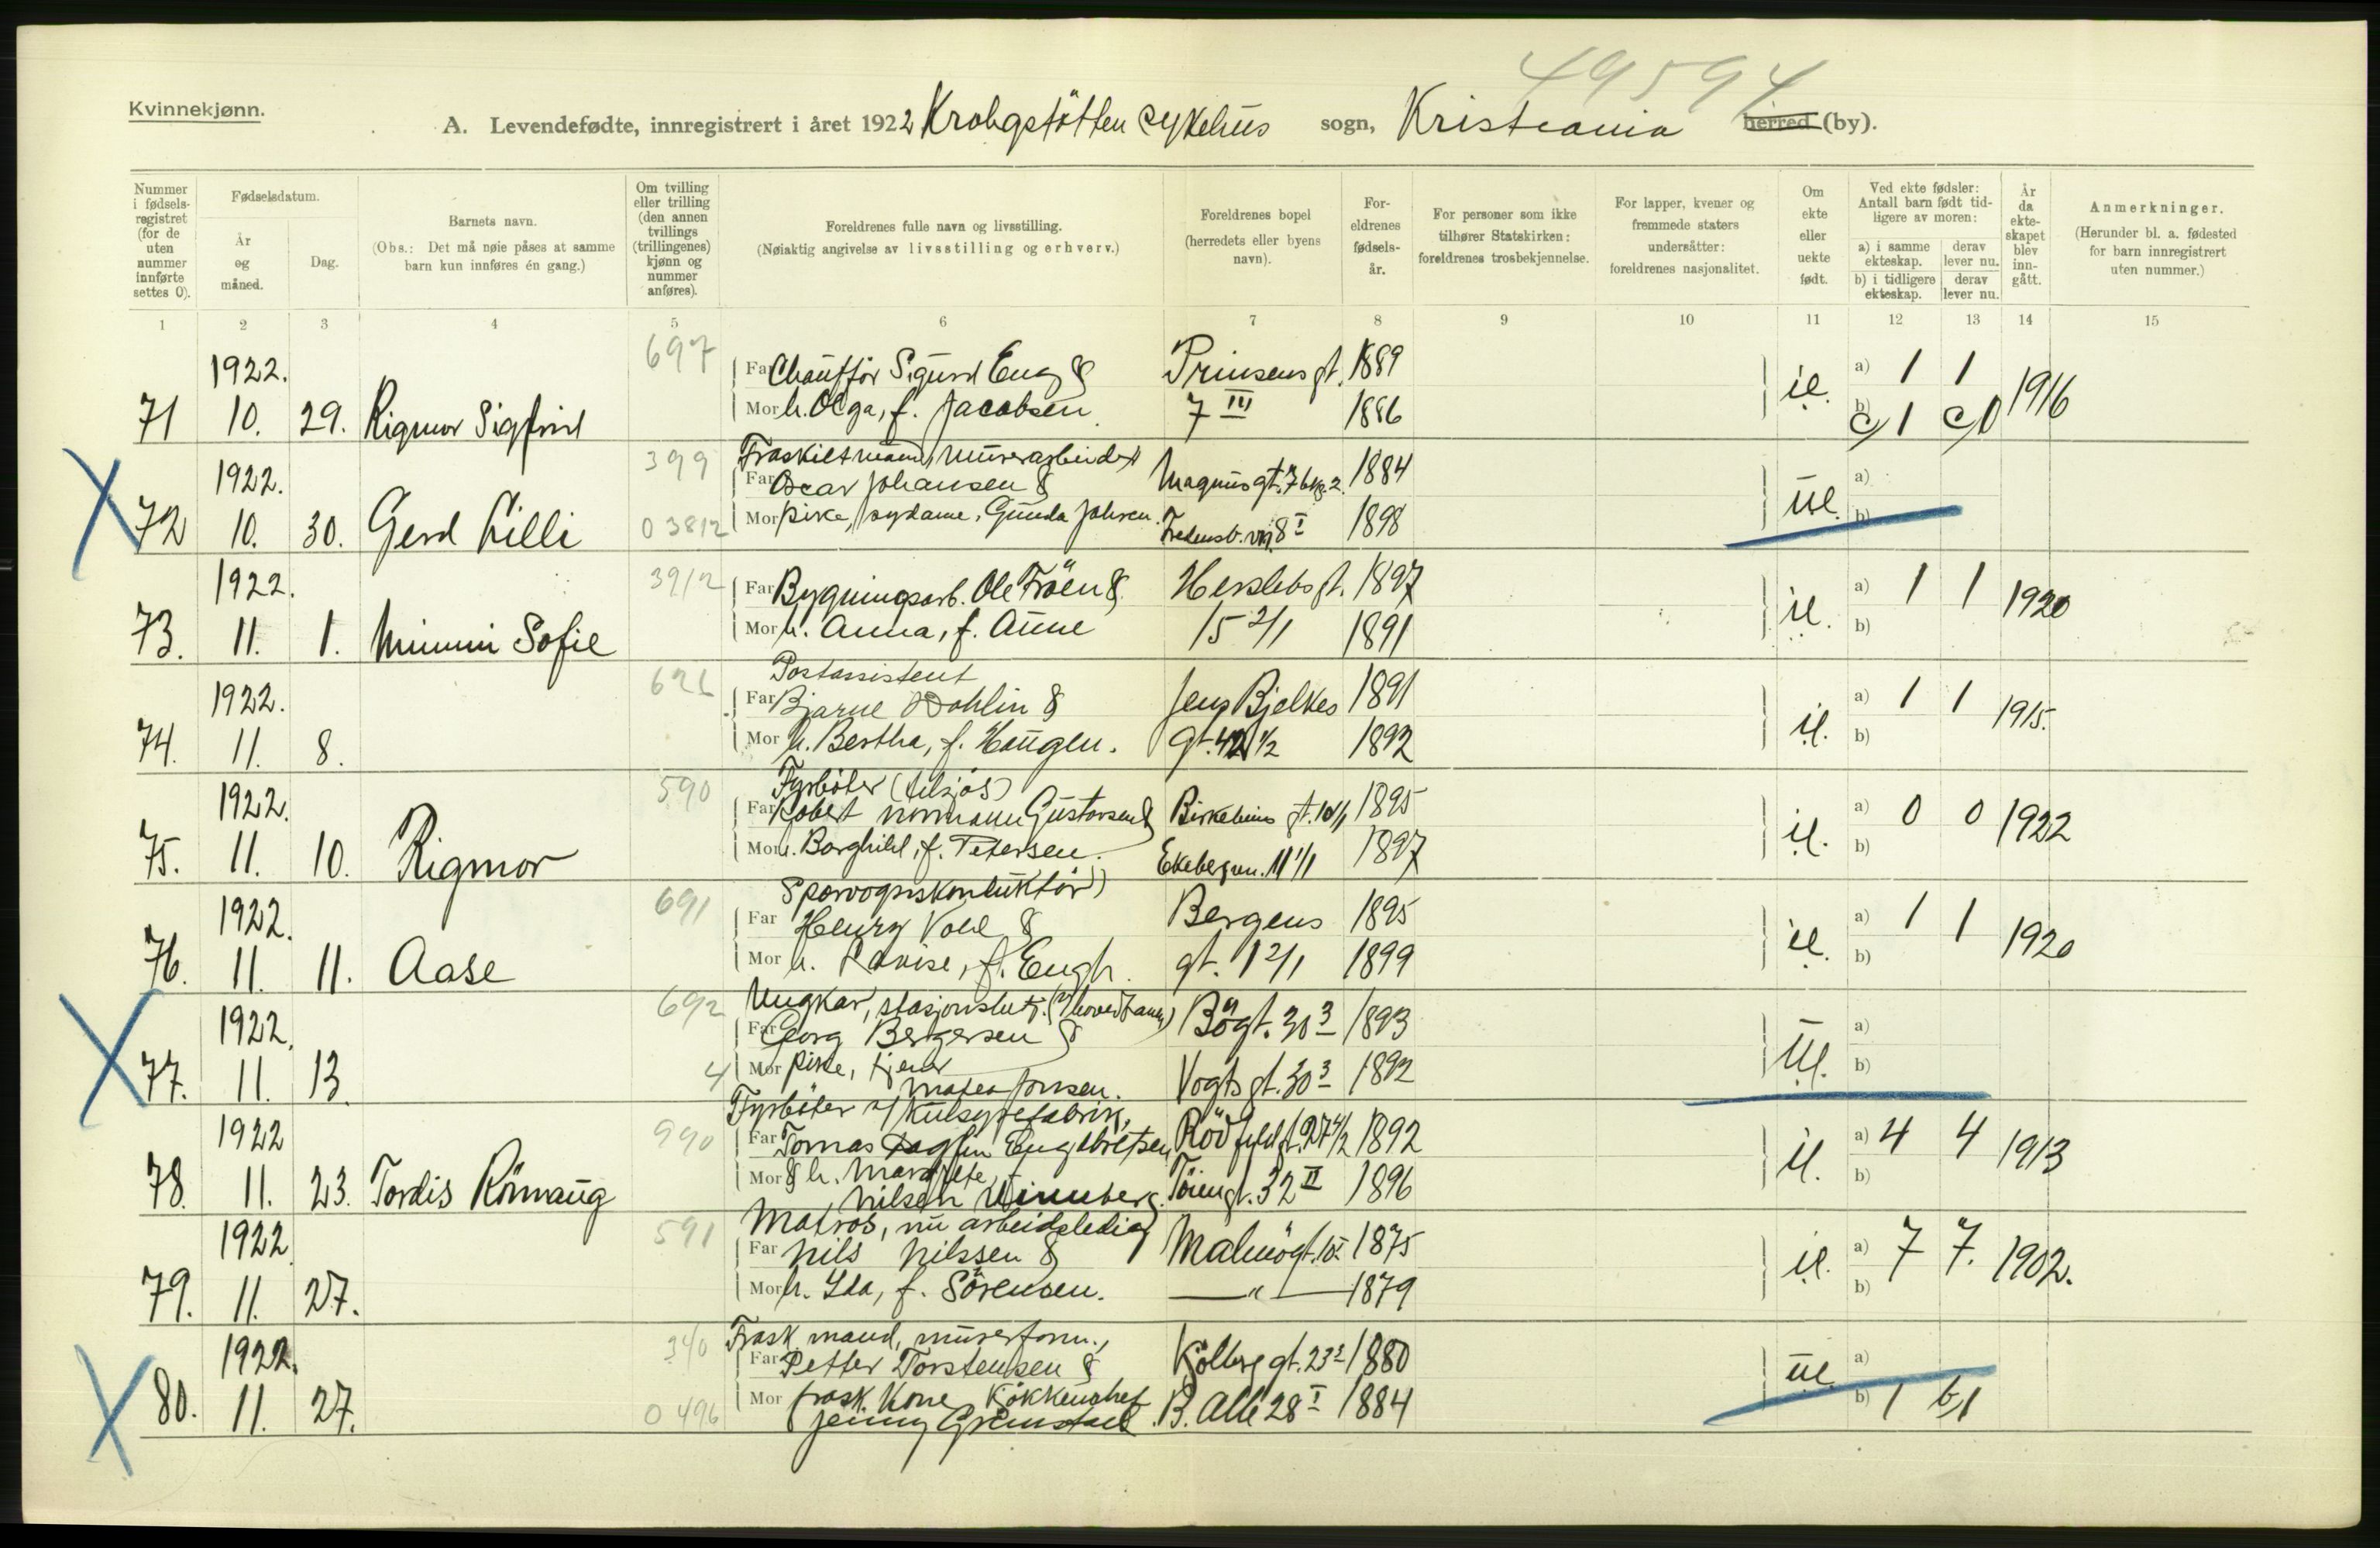 49594
Kvinnekjønn.
A. Levendefødte, innregistrert i året 1922 Krohgstøtten sykehus sogn, Kristiania herred (by).
Nummer i fødselsregistret (for de uten nummer innførte settes 0).
Fødselsdatum.
År og måned.
Dag.
Barnets navn.
(Obs.: Det må nøie påses at samme barn kun innføres én gang.)
Om tvilling eller trilling (den annen tvillings (trillingenes) kjønn og nummer anføres).
Foreldrenes fulle navn og livsstilling.
(Nøiaktig angivelse av livsstilling og erhverv.)
Foreldrenes bopel (herredets eller byens navn).
Foreldrenes fødselsår.
For personer som ikke tilhører Statskirken: foreldrenes trosbekjennelse.
For lapper, kvener og fremmede staters undersåtter: foreldrenes nasjonalitet.
Om ekte eller uekte født.
Ved ekte fødsler: Antall barn født tidligere av moren:
a) i samme ekteskap. derav lever nu.
b) i tidligere ekteskap. derav lever nu.
År da ekteskapet blev inngått.
Anmerkninger.
(Herunder bl. a. fødested for barn innregistrert uten nummer.)
1 2 3 4 5 6 7 8 9 10 11 12 13 14 15
697
1922. Far Chauffør Sigurd Eng & Prinsens gt. 1889 a) 1 1
71 10. 29. Rigmor Sigfrid Mor h. Olga, f. Jacobsen. 7 III 1886 e. b) c/1 c/0 1916
399 Fraskilt mann, murerarbeider
1922. Far Oscar Johansen & Magnus gt. 7 1884 a)
72 10. 30. Gerd Lilli 03812 Mor pike, sydame, Gunda Johsen. Fredensb. vei 8 I 1898 ue. b)
1922. 3912 Far Bygningsarb. Ole Fröen & Herslebs gt. 1897 a) 1 1
73. 11. 1. Mimmi Sofie Mor h. Anna, f. Aune 15 2/1 1891 e. b) 1920
Postassistent
1922. Far Bjarne Dahlin & Jens Bjelkes 1891 a) 1 1
74. 11. 8. Mor h. Bertha, f. Haugen. gt. 42 1/2 1892 e. b) 1915.
590 Fyrbøter (tilsjøs)
1922. Far Robert Normann Gustavsen & Birkebeins gt. 1895 a) 0 0
75. 11. 10. Rigmor Mor h. Borghild, f. Petersen. Ekebergvn. 11 1/1 1897 e. b) 1922
691 Sporvognskonduktør
1922. Far Henry Vold & Bergens 1895 a) 1 1
76. 11. 11. Aase Mor h. Lovise, f. Engh. gt. 1 2/1 1899 e. b) 1920
692 Ungkar, stasjonsbetj.
1922. Far Georg Bergersen & Bøgt. 30 3 1893 a)
77. 11. 13. 4 Mor pike, tjener Vogts gt. 30 3 1892 ue. b)
Matea Jonsen.
Fyrbøter v/ Kulsyrefabrik,
1922 990 Far Tomas Engebretsen Rødfyldgt. 27 4/2 1892 a) 4 4
78. 11. 23. Tordis Rönnaug Mor & h. Margrete, f. Tøiengt. 32 II 1896 e. b) 1913
Nilsen Winnberg.
591 Matros, nu arbeidsledig
1922 Far Nils Nilssen & Malmøgt. 10 I 1875 a) 7 7.
79. 11. 27. Mor h. Ida, f. Sörensen. —"— 1879 e. b) 1902.
340 Frask. mand, murerform.,
1922. Far Petter Torstensen & Kølberg gt. 23 2 1880 a)
80. 11. 27. Mor frask. kone Kökkenchef B. Allé 28 I 1884 ue. b) 1 b/1
0496 Jenny Grimstad